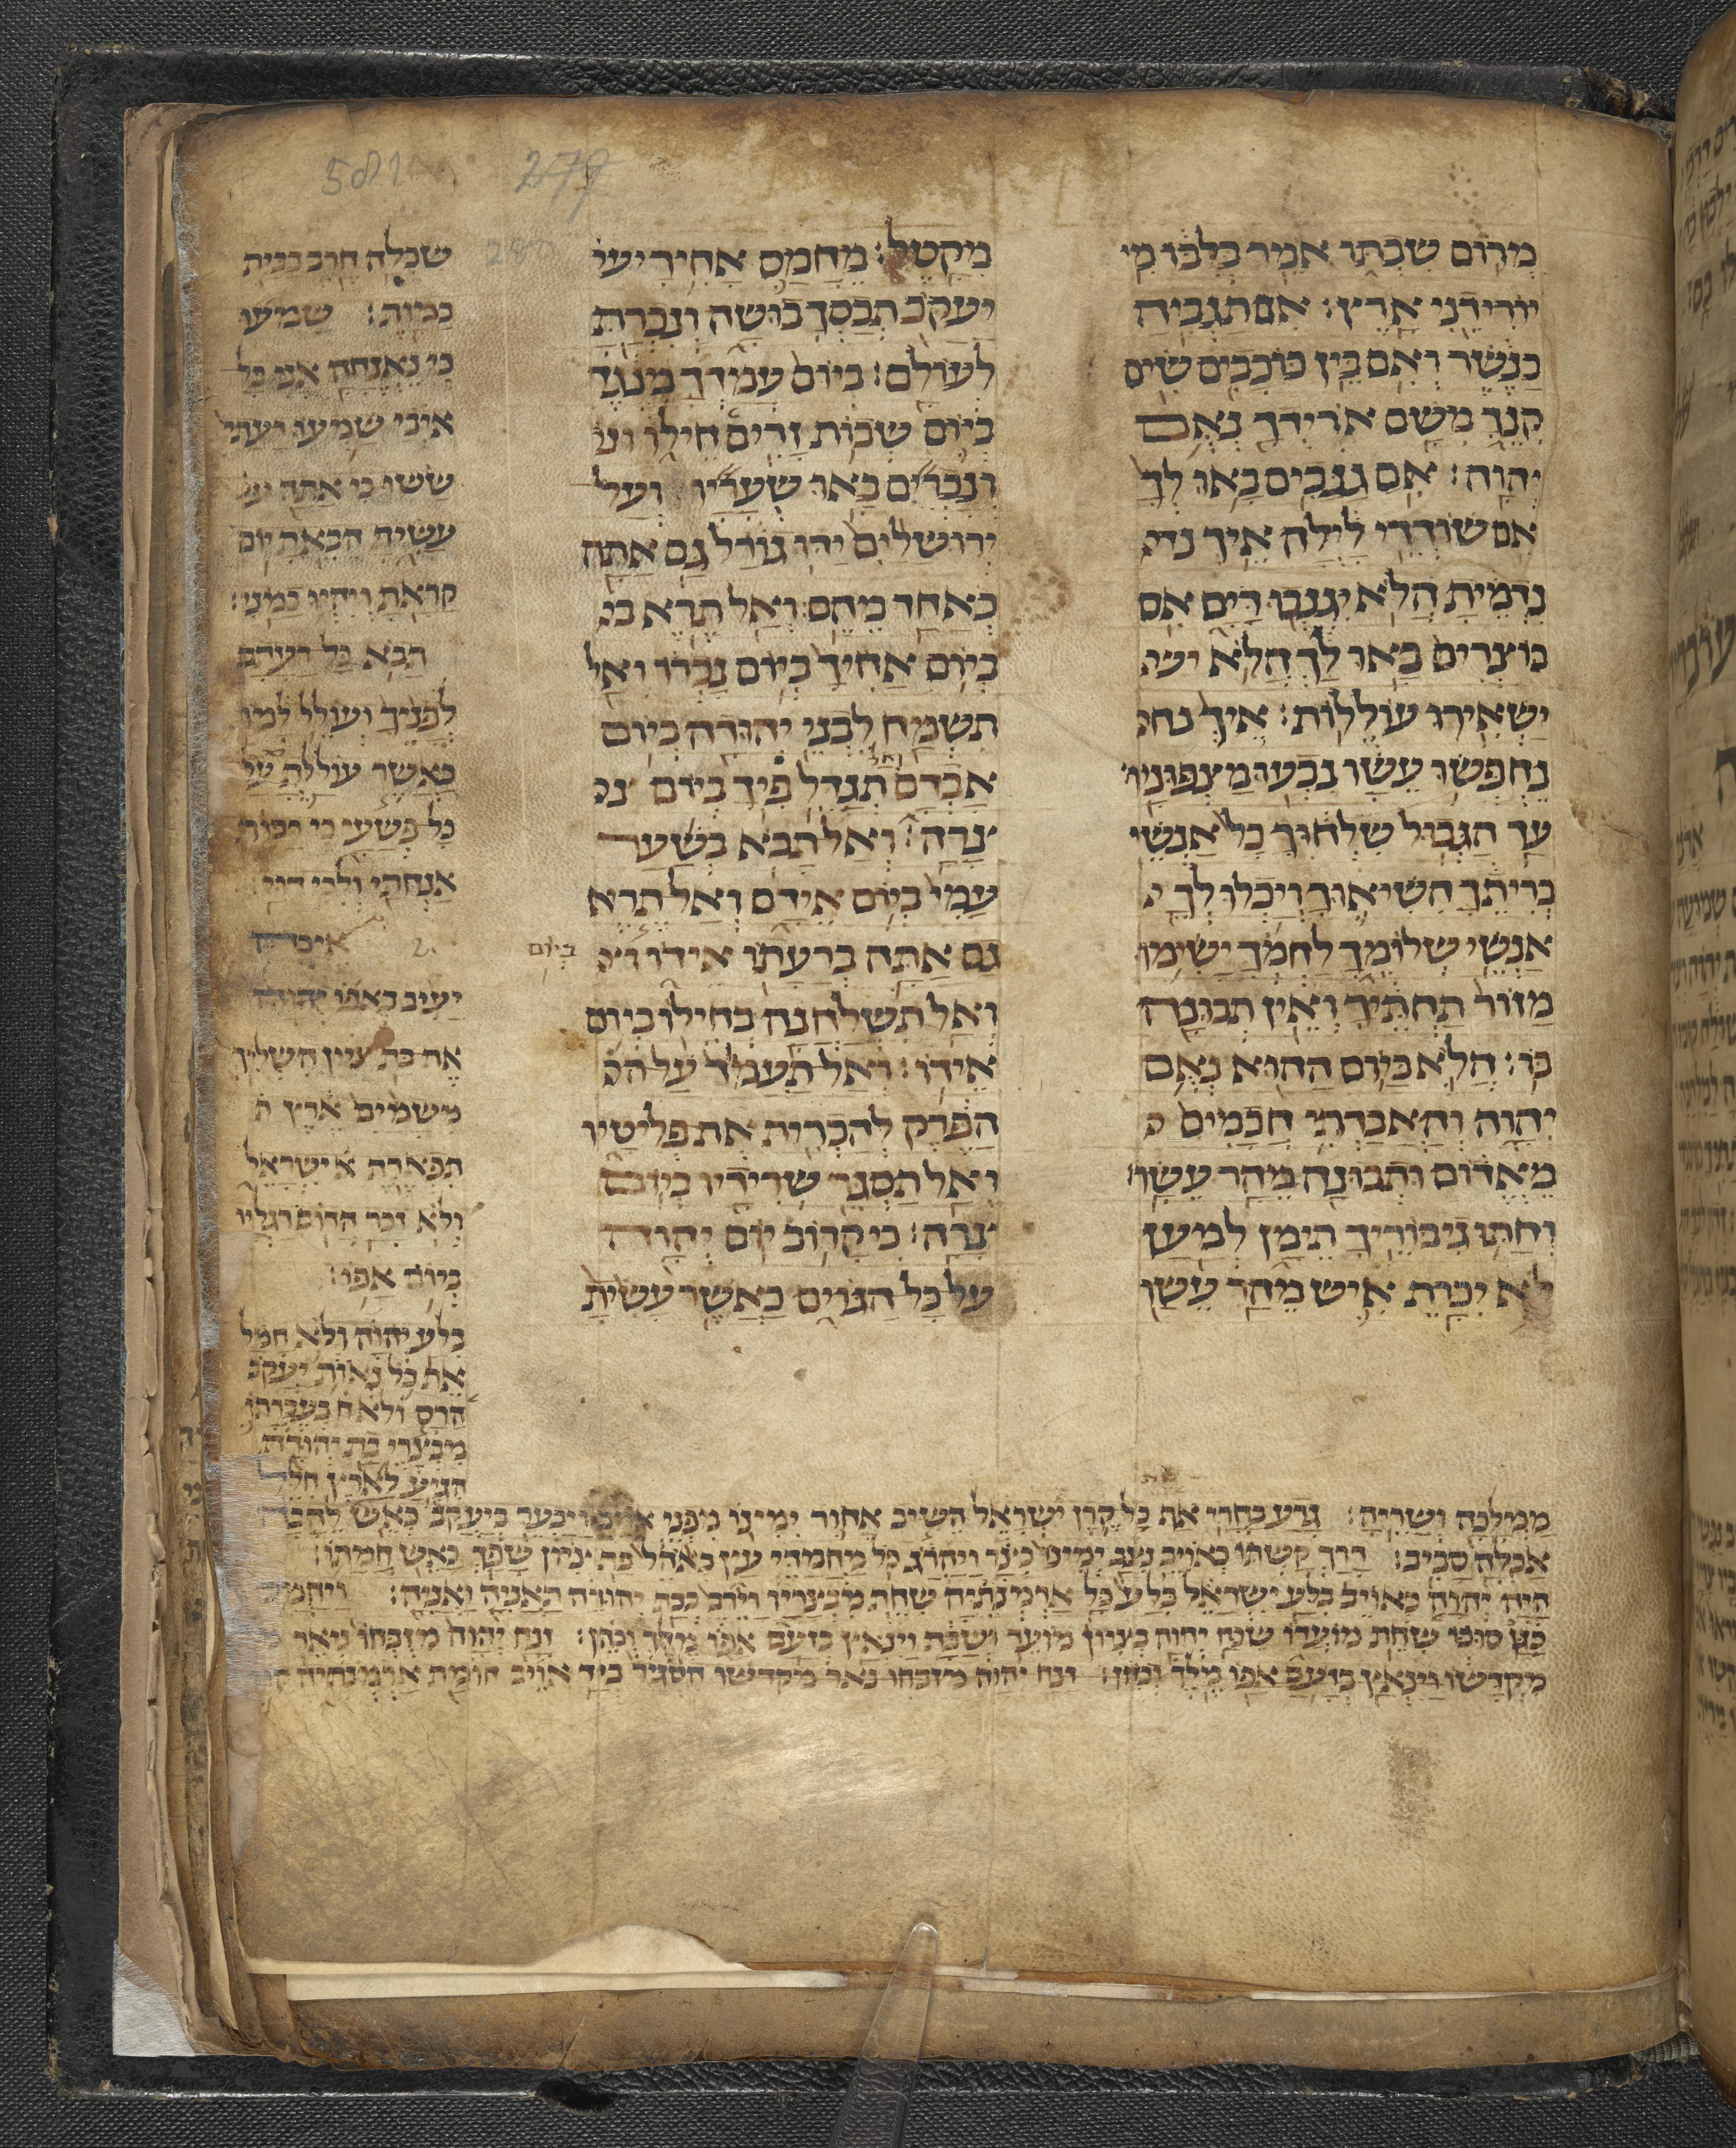 581 279
מרום שבתו אמר בלבו מי
יורידני ארץ׃ אם תגביה
כנשר ואם בין כוכבים שים
קנך משם אורידך נאם
יהוה׃ אם גנבים באו לך
אם שודדי לילה איך נדמ
נדמית הלא יגנבו דים אם
בוצרים באו לך הלא יש
ישאירו עוללות׃ איך נחפ
נחפשו עשו נבעו מצפוניו
עד הגבול שלחוך כל אנשי
בריתך השיאוך ויכלו לך
אנשי שלומך לחמך ישימו
מזור תחתיך ואין תבונה
בו׃ הלא ביום ההוא נאם
יהוה והאבדתי חכמים
מאדום ותבונה מהר עשו
וחתו גיבוריך תימן למען
לא יכרת איש מהר עשו
מקטל׃ מחמס אחיך יע
יעקב תכסך בושה ונכרת
לעולם׃ ביום עמדך מנגד
ביום שבות זרים חילו
ונכרים באו שעריו ועל
ירושלים ידו גורל גם אתה
כאחד מהם׃ ואל תרא
ביום אחיך ביום נכרו ואל
תשמח לבני יהודה ביום
אבדם תגדל פיך ביום
צרה׃ ואל תבא בשער
עמי ביום אידם ואל תרא
גם אתה ברעתו אידו
ביום
ואל תשלחנה בחילו ביום
אידו׃ ואל תעמד על
הפרק להכרית את פליטיו
ואל תסגר שרידיו ביום
צרה׃ כי קרוב יום יהוה
על כל הגוים כאשר עשית
שכלה חרב בבית
כמות׃ שמעו
כי נאנחה אני כל
איבי שמעו רעתי
ששו כי אתה
עשית הבאת יום
קראת ויהיו כמני׃
תבא כל רעתם
לפניך ועולל למו
כאשר עוללת
כל פשעי כי רבות
אנחתי ולבי דוי
איכה
יעיב באפו יהוה
את בת ציון השליך
משמים ארץ
תפארת ישראל
ולא זכר הדום רגליו
ביום אפו׃
בלע יהוה ולא חמל
את כל נאות יעקב
הרס בעברתו
מבצרי בת יהודה
הגיע לארץ חלל
ממלכה ושריה׃ גדע בחרי אף כל קרן ישראל השיב אחור ימינו מפני אויב ויבער ביעקב כאש להבה
אכלה סביב׃ דרך קשתו כאויב נצב ימינו כצר ויהרג כל מחמדי עין באהל בת ציון שפך כאש חמתו׃
היה יהוה כאויב בלע ישראל בלע כל ארמנתיה שחת מבצריו וירב בבת יהודה תאניה ואניה׃ ויחמס
כגן סוכו שחת מועדו שכח יהוה בציון מועד ושבת וינאץ בזעם אפו מלך וכהן׃ זנח יהוה מזבחו נאר
מקדשו וינאץ בזעם אפו מלך וכהן׃ זנח יהוה מזבחו נאר מקדשו הסגיר ביד אויב חומת ארמנותיה